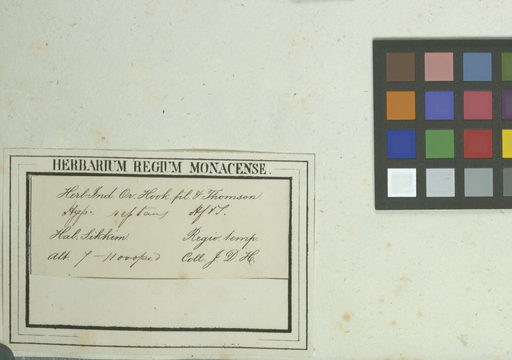 HERBARIUM REGIUM MONACENSE.
Herb. Ind. Or. Hook. fil. & Thomson
reptans H.f.&T.
Hab. Sikkim Regio temp.
Alt. 7-11000 ped Coll. J. D. H.